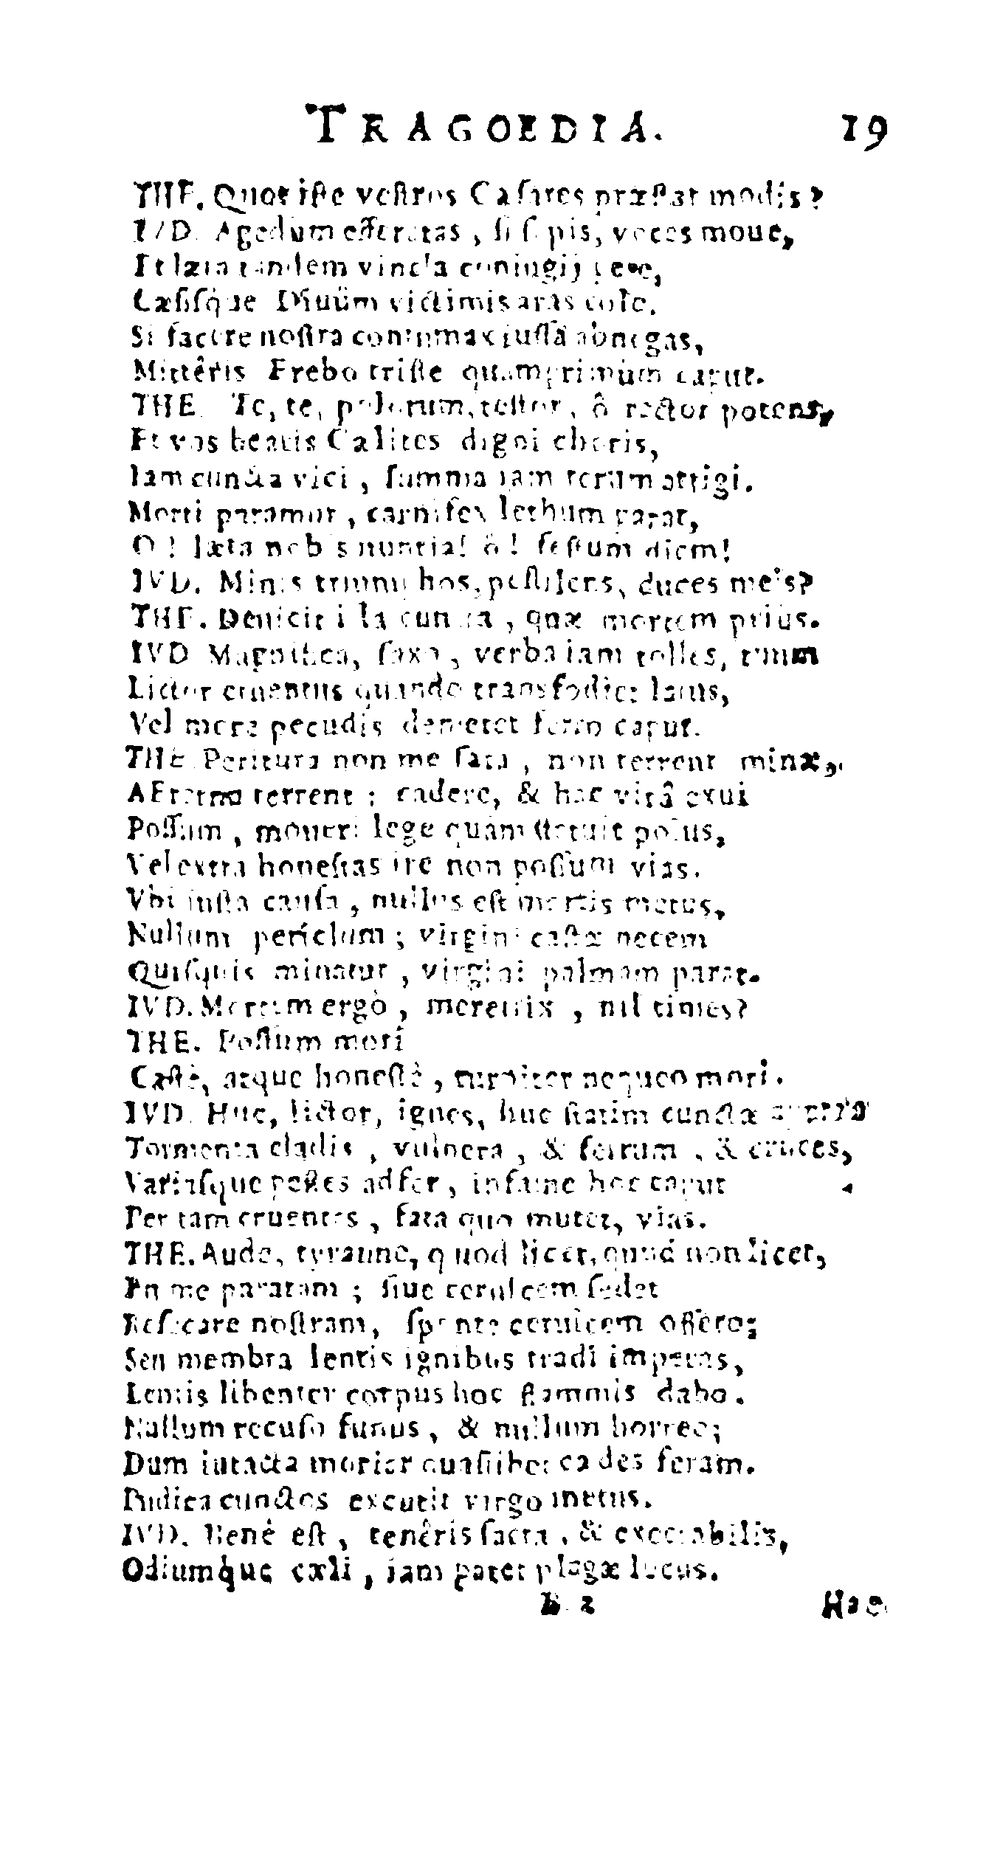 TRAGOEDIA. 19
THE. Quot iste vestros Cæsares præstat modis?
IVD. Agedum efferatas, si sapis, voces moue,
Et læta tandem vincla coniugij
Cæsisq́ue Diuûm victimis aras cole.
Si facere nostra contumax iussa abnegas,
Mittêris Erebo triste quamprimùm caput.
THE. Te, te, polorum, testor, ô rector potens,
Et vos beatis Cælites digni choris,
Iam cuncta vici, summa iam rerum attigi.
Morti paramur, carnifex lethum parat,
O! læta nobis nuntia! ô! festum diem!
IVD. Minis triumphos, pestilens, duces meis?
THE. Deuicit illa cuncta, quæ mortem priùs.
IVD. Magnifica, saxo, verba iam tolles, tuum
Lictor cruentus quando transfodiet latus,
Vel more pecudis demetet ferro caput.
THE. Peritura non me fata, non terrent minæ,
AEterna terrent: cadere, & hac vitâ exui
Possum, moueri lege quam statuit polus,
Vel extra honestas ire non possum vias.
Vbi iusta causa, nullus est mortis metus,
Nullum periclum; virgini castæ necem
Quisquis minatur, virgini palmam parat.
IVD. Mortem ergò, meretrix, nil times?
THE. Possum mori
Castè, atque honestè, turpiter nequeo mori.
IVD. Huc, lictor, ignes, huc statim cunctæ
Tormenta cladis, vulnera, & ferrum, & cruces,
Variasque pestes adfer, infame hoc caput
Per tam cruentas, fata quo mutet, vias.
THE. Aude, tyranne, quod licet, quod non licet,
En me paratam; siue ceruicem sedet
Resecare nostram, sponte ceruicem offero;
Seu membra lentis ignibus tradi imperas,
Lentis libenter corpus hoc flammis dabo.
Nullum recuso funus, & nullum horreo;
Dum intacta moriar quaslibet cædes feram.
Pudica cunctos excutit virgo metus.
IVD. Benè est, tenêris facta, & execrabilis,
Odiumq́ue cæli, iam patet plagæ locus.
B 2 Hac